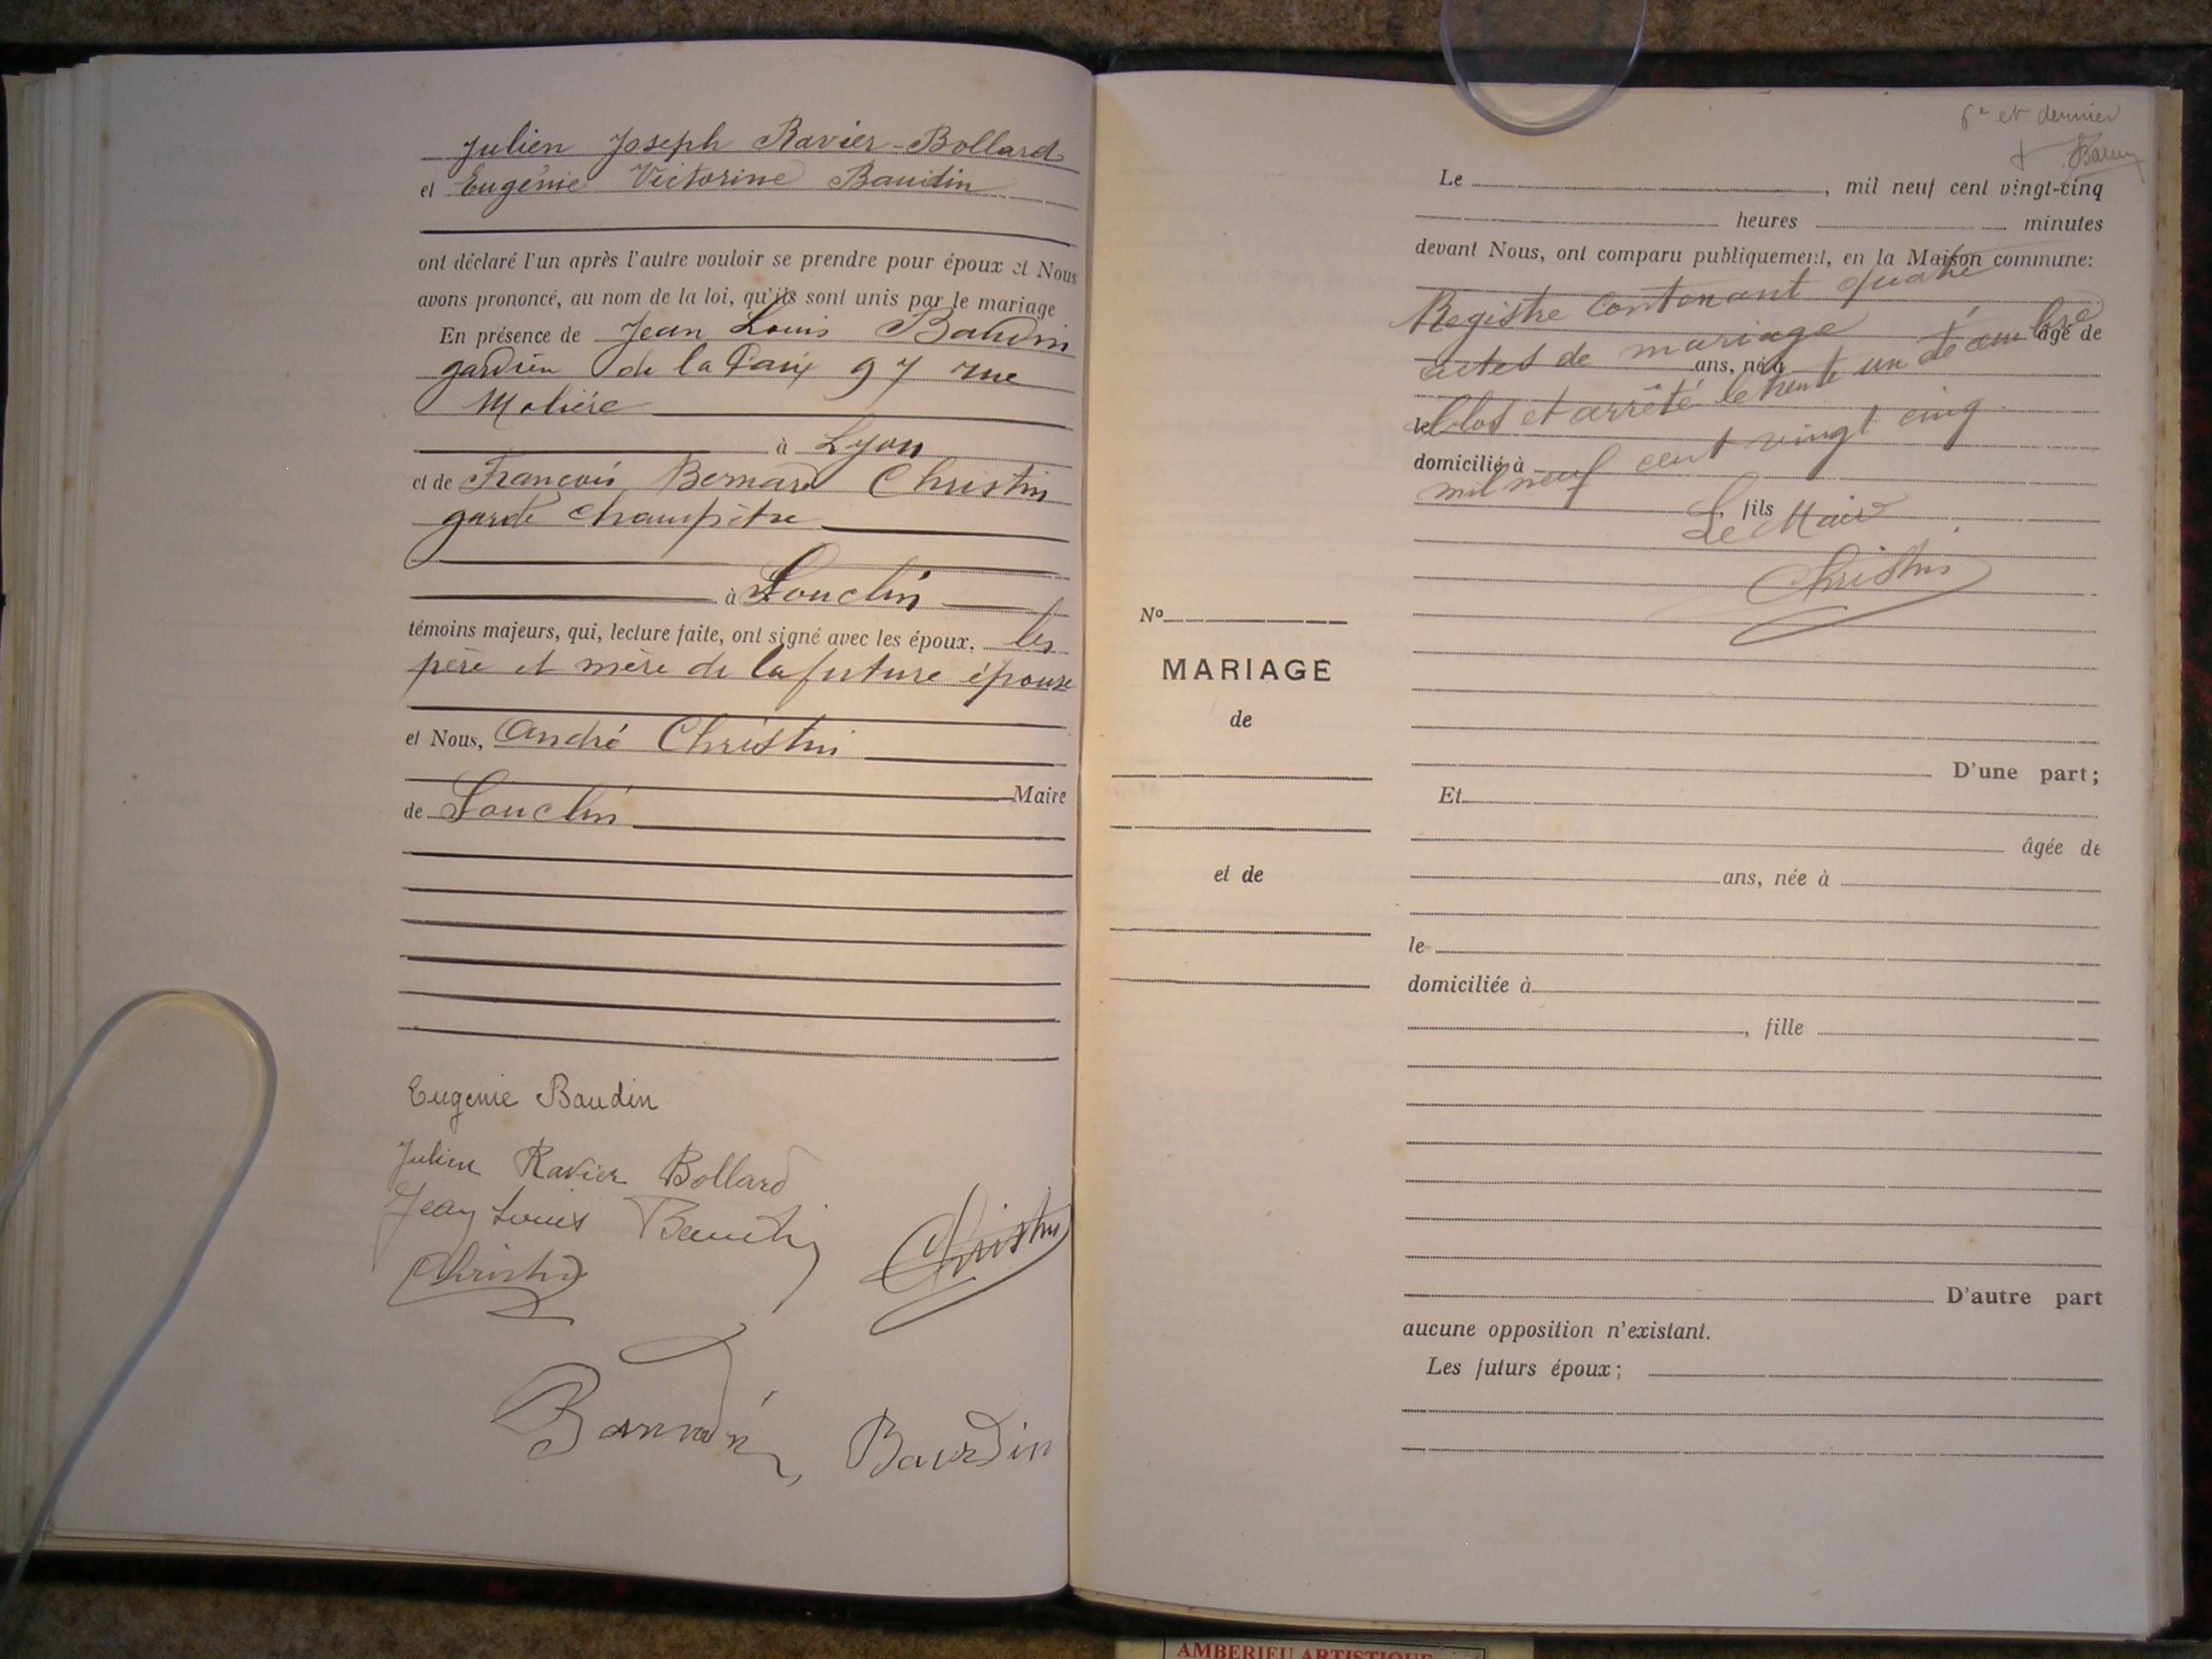 Julien Joseph Ravier-Bollard
et Eugénie Victorine Baudin
ont déclaré l'un après l'autre vouloir se prendre pour époux et Nous
avons prononcé, au nom de la loi, qu'ils sont unis par le mariage
En présence de Jean Louis Baudin
gardien de la Paix 97 rue
Molière
à Lyon
et de François Bernard Christin
garde champètre
à Souclin
témoins majeurs, qui, lecture faite, ont signé avec les époux, les
père et mère de la future épouse
et Nous, André Christin
Maire
de Souclin
Eugenie Baudin
Julien Ravier Bollard
Jean Louis Baudin
Christin
Christin
Baudin
Baudin
6e et dernier
Le , mil neuf cent vingt-cinq
heures minutes
devant Nous, ont comparu publiquement, en la Maison commune:
Registre contenant quatre
âgé de
actes de mariage
ans, né à
Clos et arrêté le trente un décembre
le
mil neuf cent vingt cinq.
domicilié à
, fils
Le Maire
Christin
No
MARIAGE
de
et de
D'une part;
Et
âgée de
ans, née à
le
domiciliée à
, fille
D'autre part
aucune opposition n'existant.
Les futurs époux;
AMBERIEU ARTISTIQUE